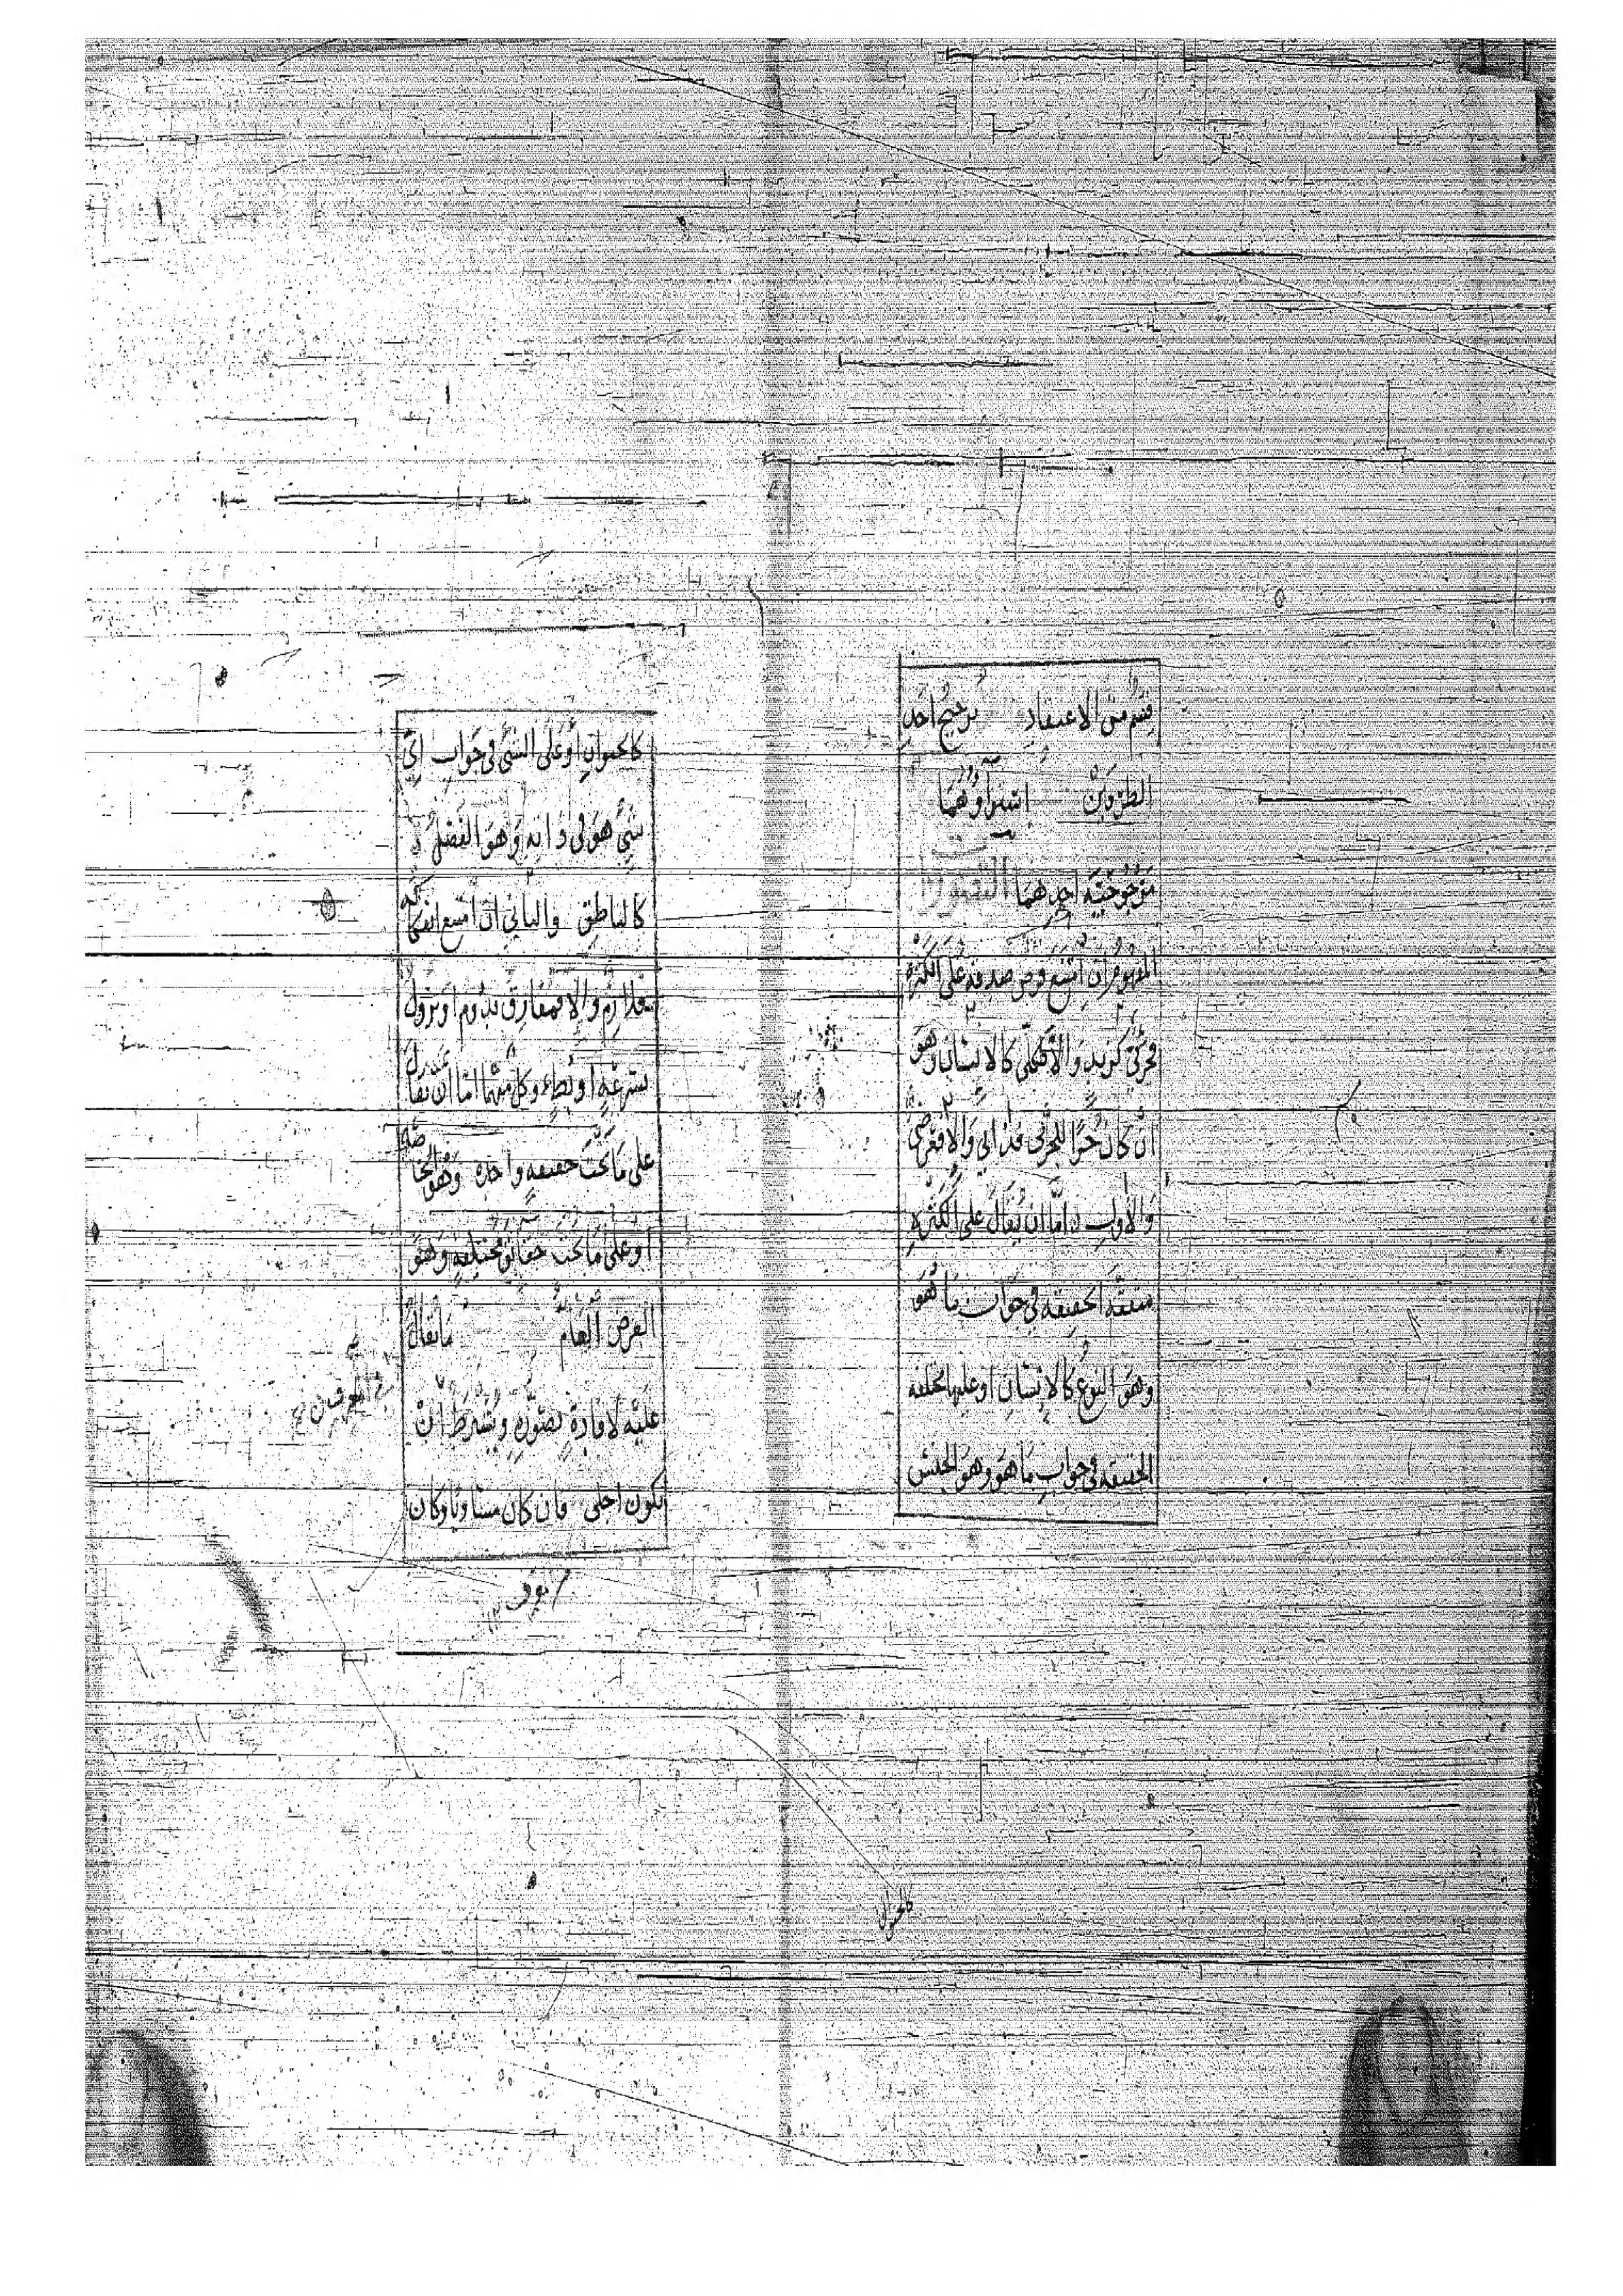 قسم من الاعتقاد ترجيح احد
الطرفين استواؤهما
مرجوحية احدهما
المفهوم ان امتنع فرض صدقه على الكثرة
فجزئي كزيد والا فكلي كالانسان وهو
ان كان جزءا للجزئي فذاتي والا فعرضي
والاول اما ان يقال على الكثرة
متفقة الحقيقة في جواب ما هو
وهو النوع كالانسان او عليها مختلفة
الحقيقة في جواب ما هو وهو الجنس
كالحيوان
كالحيوان او على الشئ في جواب اي
شئ هو في ذاته وهو الفصل
كالناطق والثاني ان امتنع انفكاكه
فلازم والا فمفارق يدوم او يزول
بسرعة او بطء وكل منهما اما ان يقال
على ما تحت حقيقة واحدة وهو الخاصة
او على ما تحت حقائق مختلفة وهو
العرض العام ما يقال
عليه لافادة تصوره ويشترط ان
يكون اجلى فان كان مساويا وكان